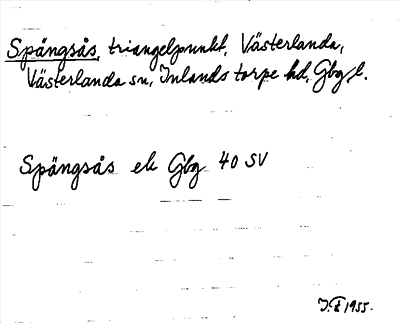 Spångsås, triangelpunkt, Västerlanda,
Västerlanda sn, Inlands torpe hd, Gbg l.
Spångsås ek Gbg 40 SV
1955.